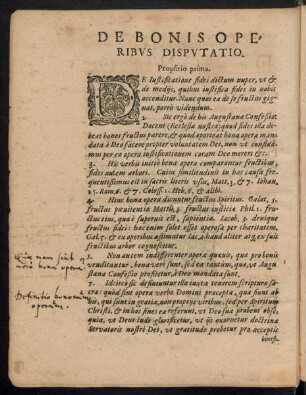 DE BONIS OPE-
RIBVS DISPVTATIO.
Propositio prima.
DE Iustificatione fidei dictum nuper, vt &
de medijs, quibus iustifica fides in nobis
accenditur. Nunc quos ea de se fructus gig-
nat, porrò videndum.
2. Sic ergò de his Augustana Confessio:
Docent (Ecclesiæ nostræ) quòd fides illa de-
beat bonos fructus parere, & quòd oporteat bona opera man-
data à Deo facere propter voluntatem Dei, non vt confida-
mus per ea opera iustificationem coram Deo mereri &c.
3. Hîc verbis initiò bona opera comparantur fructibus,
fides autem arbori. Cuius similitudinis in hac causa fre-
quentissimus est in sacris literis vsus, Matt. 3. & 7. Iohan.
15. Rom. 6. & 7. Coloss. 1. Heb. 6. & alibi.
4. Hinc bona opera dicuntur fructus Spiritus. Galat. 5.
fructus pœnitentiæ Matth. 3. fructus iustitiæ Phil. 1.
fructus, quæ è supernis est, sapientiæ Iacob. 3. denique
fructus fidei: hæc enim fides esset operosa per charitatem,
Gal. 5. & ex operibus æstimatur Iac. 2. haud aliter atq; ex suis
fructibus arbor cognoscitur.
5. Non autem indifferenter opera quæuis, quæ pro bonis
venditantur, bona verè sunt, sed ea tantùm, quæ, vt Augus-
tana Confessio profitetur, à Deo mandata sunt.
Idcircò sic definiuntur illa iuxta tenorem scripturæ sa-
cræ: quòd sint opera verbo Domini præcepta, quæ fiunt ab
ijs, qui sunt in gratia, non proprijs viribus, sed per Spiritum
Christi, & in hos fines ea referunt, vt Deo suâ probent obse-
quia, vt Deus inde glorificetur, vt ijs exornetur doctrina
Servatoris nostri Dei, vt gratitudo probetur pro acceptis
benefi-
bona opera
Definitio bonorum
operum.